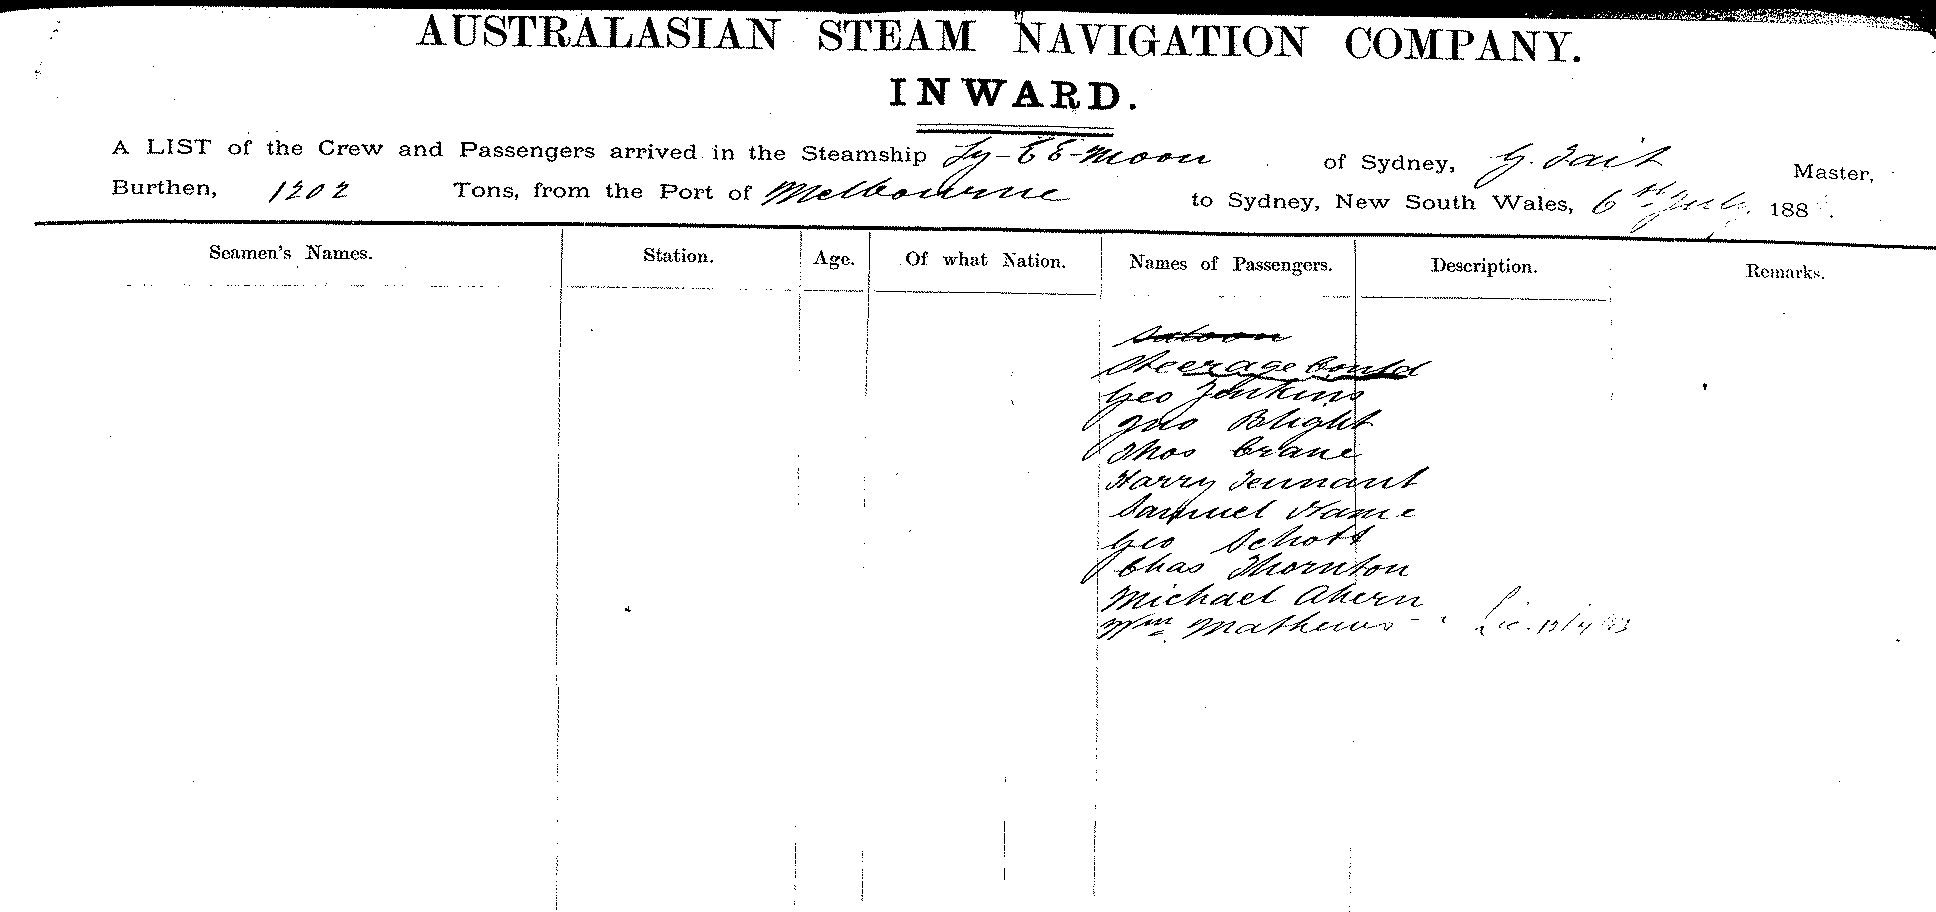 AUSTRALASIAN STEAM NAVIGATION COMPANY.
INWARD.
A LIST of the Crew and Passengers arrived in the Steamship Ly-EE-Moon of Sydney, G. Tait Master,
Burthen, 1202 Tons, from the Port of Melbourne to Sydney, New South Wales, 6th July 188
Seamen's Names. Station. Age. Of what Nation. Names of Passengers. Description. Remarks.
Saloon
Steerage Contd
Geo Jenkins
Jno Blight
Thos Crane
Harry Tennant
Samuel Hame
Geo Schott
Chas Thornton
Michael Ahern
Wm Mathews